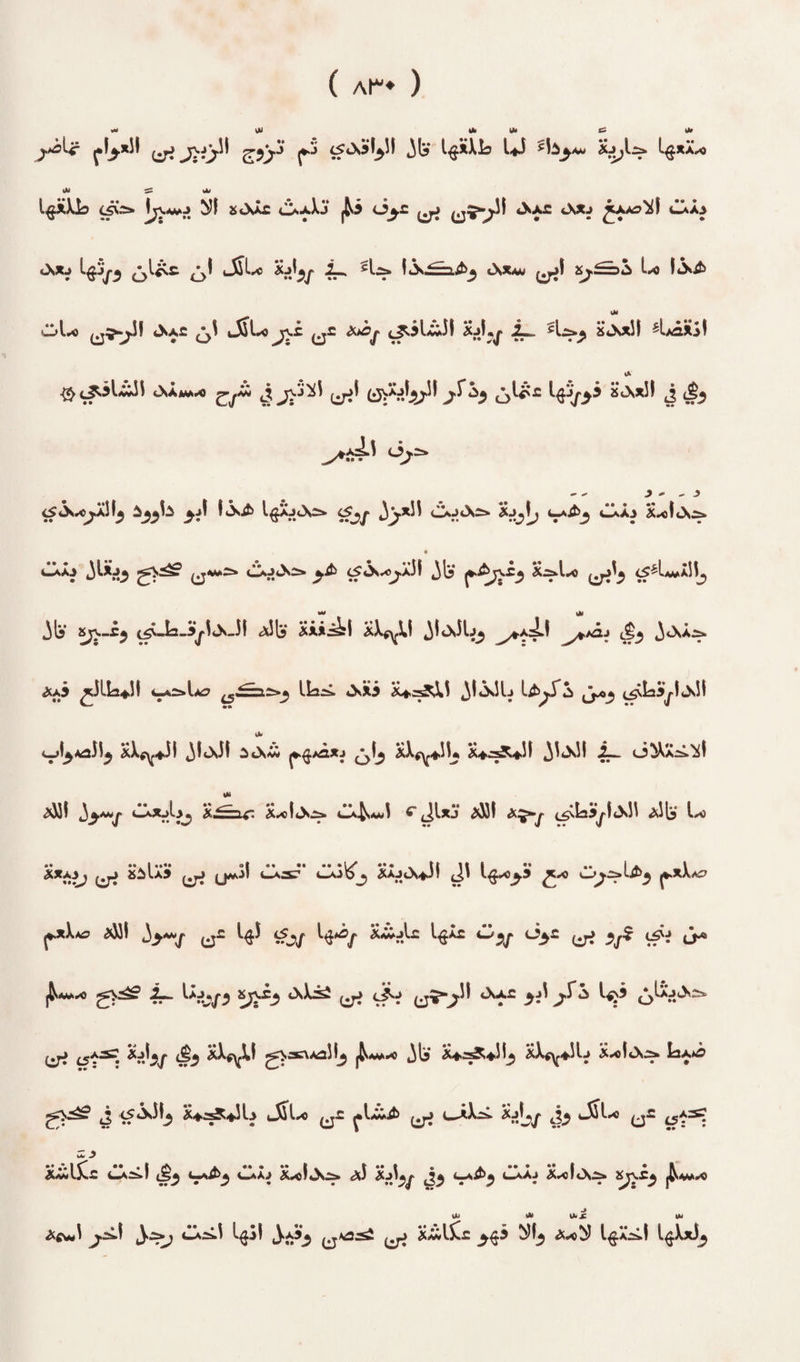 ( ٨٣٠ )
متعها جاريةً سوداءَ لمّا طلّقها قال الواقدي ثم تزوّج الزبير بن العوّام تماضر
بنت الاصبغ بعد عبد الرحمن بن عوف فلم تلبث عنده الّا يسيراً حتي طلّقها
هذا ما ذكره ابن سعد وهكذا جاء في رواية مالك ان عثمان ورثها بعد
انقضاء العدّة وجاء في رواية الشافعي رضه عن غير مالك ان عبد الرحمن مات
وهي في العدة فورّثها عثمان وذكر الروايتين ابن الاثير في شرح مسند الشافعي ۞
حرف الجيم
جُدَامَةُ بنت وَهَب راوية حديث العزل روي حديثها هذا ابو داوود والترمذي
والنساءي وابن ماجة وغيرهم قال الترمذي هو حديث حسن صحيح ويقال بنت
جندل وهي بضمّ الجيم وبالدال المهملة المخفّفة قاله الدارقطني وغيره قال
الدارقطني ومن ذكرها بالذال المعجمة فقد خطا وحكي صاحب المطالع فيه
الاختلاف في الدال المعجمة والمهملة وان بعضهم شدّد الدال المهملة والصواب
ما قاله الدارقطني رحمه الله تعالي ء اسلمت جدامة بمكّة وبايعت رسول الله
صلعم وهاجرت مع قومها الي المدينة وكانت تحت انس بن قتادة بن ربيعة
من بني عمرو بن عوف روت عنها عايشة رضها روي لها عن رسول الله صلعم
حديثان فيما ذكر ابو عبد الرحمن بقي بن مخلد وغيره وروينا في صحيح مسلم
ضبط جدامة بالمهملة والمعجمة قال مسلم والصحيح المهملة وهي رواية يحيي بن
يحيي عن مالك وفي رواية خلف بن هشام عن مالك بالمعجمة والذي في صحيح
مسلم وغيره جدامة بنت وهب وفي رواية له جدامة بنت وهب وهي اخت عكاشة
ولعلّها اختها لامّه والّا فهو عكّاشة بن محصن وقيل انها اخت رجل اخر اسمه